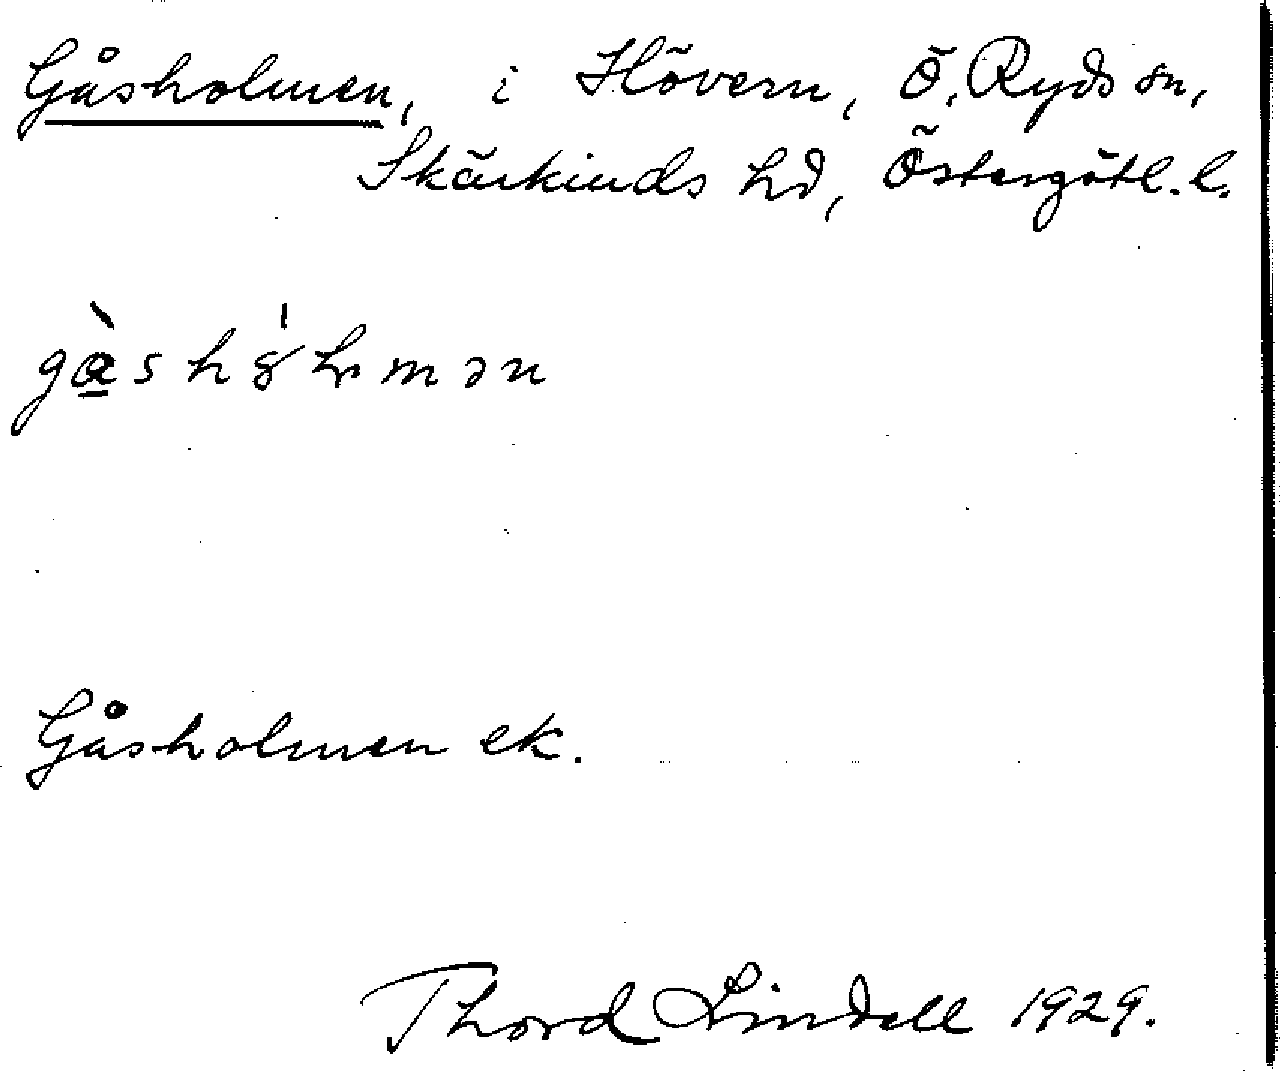 Gåsholmen, i Hövern, Ö. Ryds sn,
Skärkinds hd, Östergötl. l.
Gåsholmen ek.
Thord Lindell 1929.